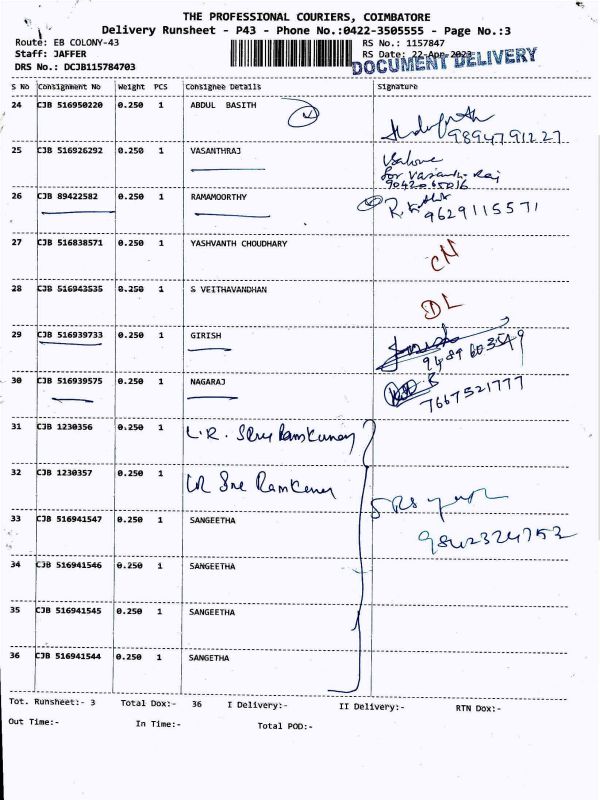 THE PROFESSIONAL COURIERS, COIMBATORE
Delivery Runsheet - P43 - Phone No.:0422-3505555 - Page No.:3
Route: EB COLONY-43 RS No.: 1157847
Staff: JAFFER RS Date: 22-Apr-2023
DRS No.: DCJB115784703 DOCUMENT DELIVERY
S No Consignment No Weight PCS Consignee Details Signature
24 CJB 516950220 0.250 1 ABDUL BASITH 9894791227
25 CJB 516926292 0.250 1 VASANTHRAJ
for Vasanth Raj
9042065016
26 CJB 89422582 0.250 1 RAMAMOORTHY 9629115571
27 CJB 516838571 0.250 1 YASHVANTH CHOUDHARY CN
28 CJB 516943535 0.250 1 S VEITHAVANDHAN DL
29 CJB 516939733 0.250 1 GIRISH 9489603549
30 CJB 516939575 0.250 1 NAGARAJ 7667521777
31 CJB 1230356 0.250 1 L.R. Sree Ramkumar
32 CJB 1230357 0.250 1 LR Sre Ramkumar
33 CJB 516941547 0.250 1 SANGEETHA 9842324752
34 CJB 516941546 0.250 1 SANGEETHA
35 CJB 516941545 0.250 1 SANGEETHA
36 CJB 516941544 0.250 1 SANGETHA
Tot. Runsheet:- 3 Total Dox:- 36 I Delivery:- II Delivery:- RTN Dox:-
Out Time:- In Time:- Total POD:-